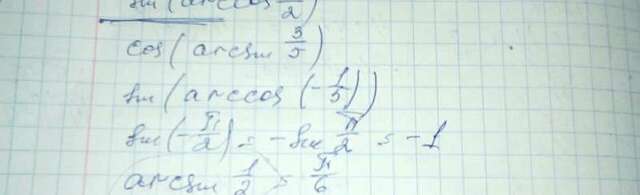 sin(arccos /2)
cos(arcsin 3/5)
sin(arccos(-1/5))
sin(-π/2) = -sin π/2 = -1
arcsin 1/2 = π/6